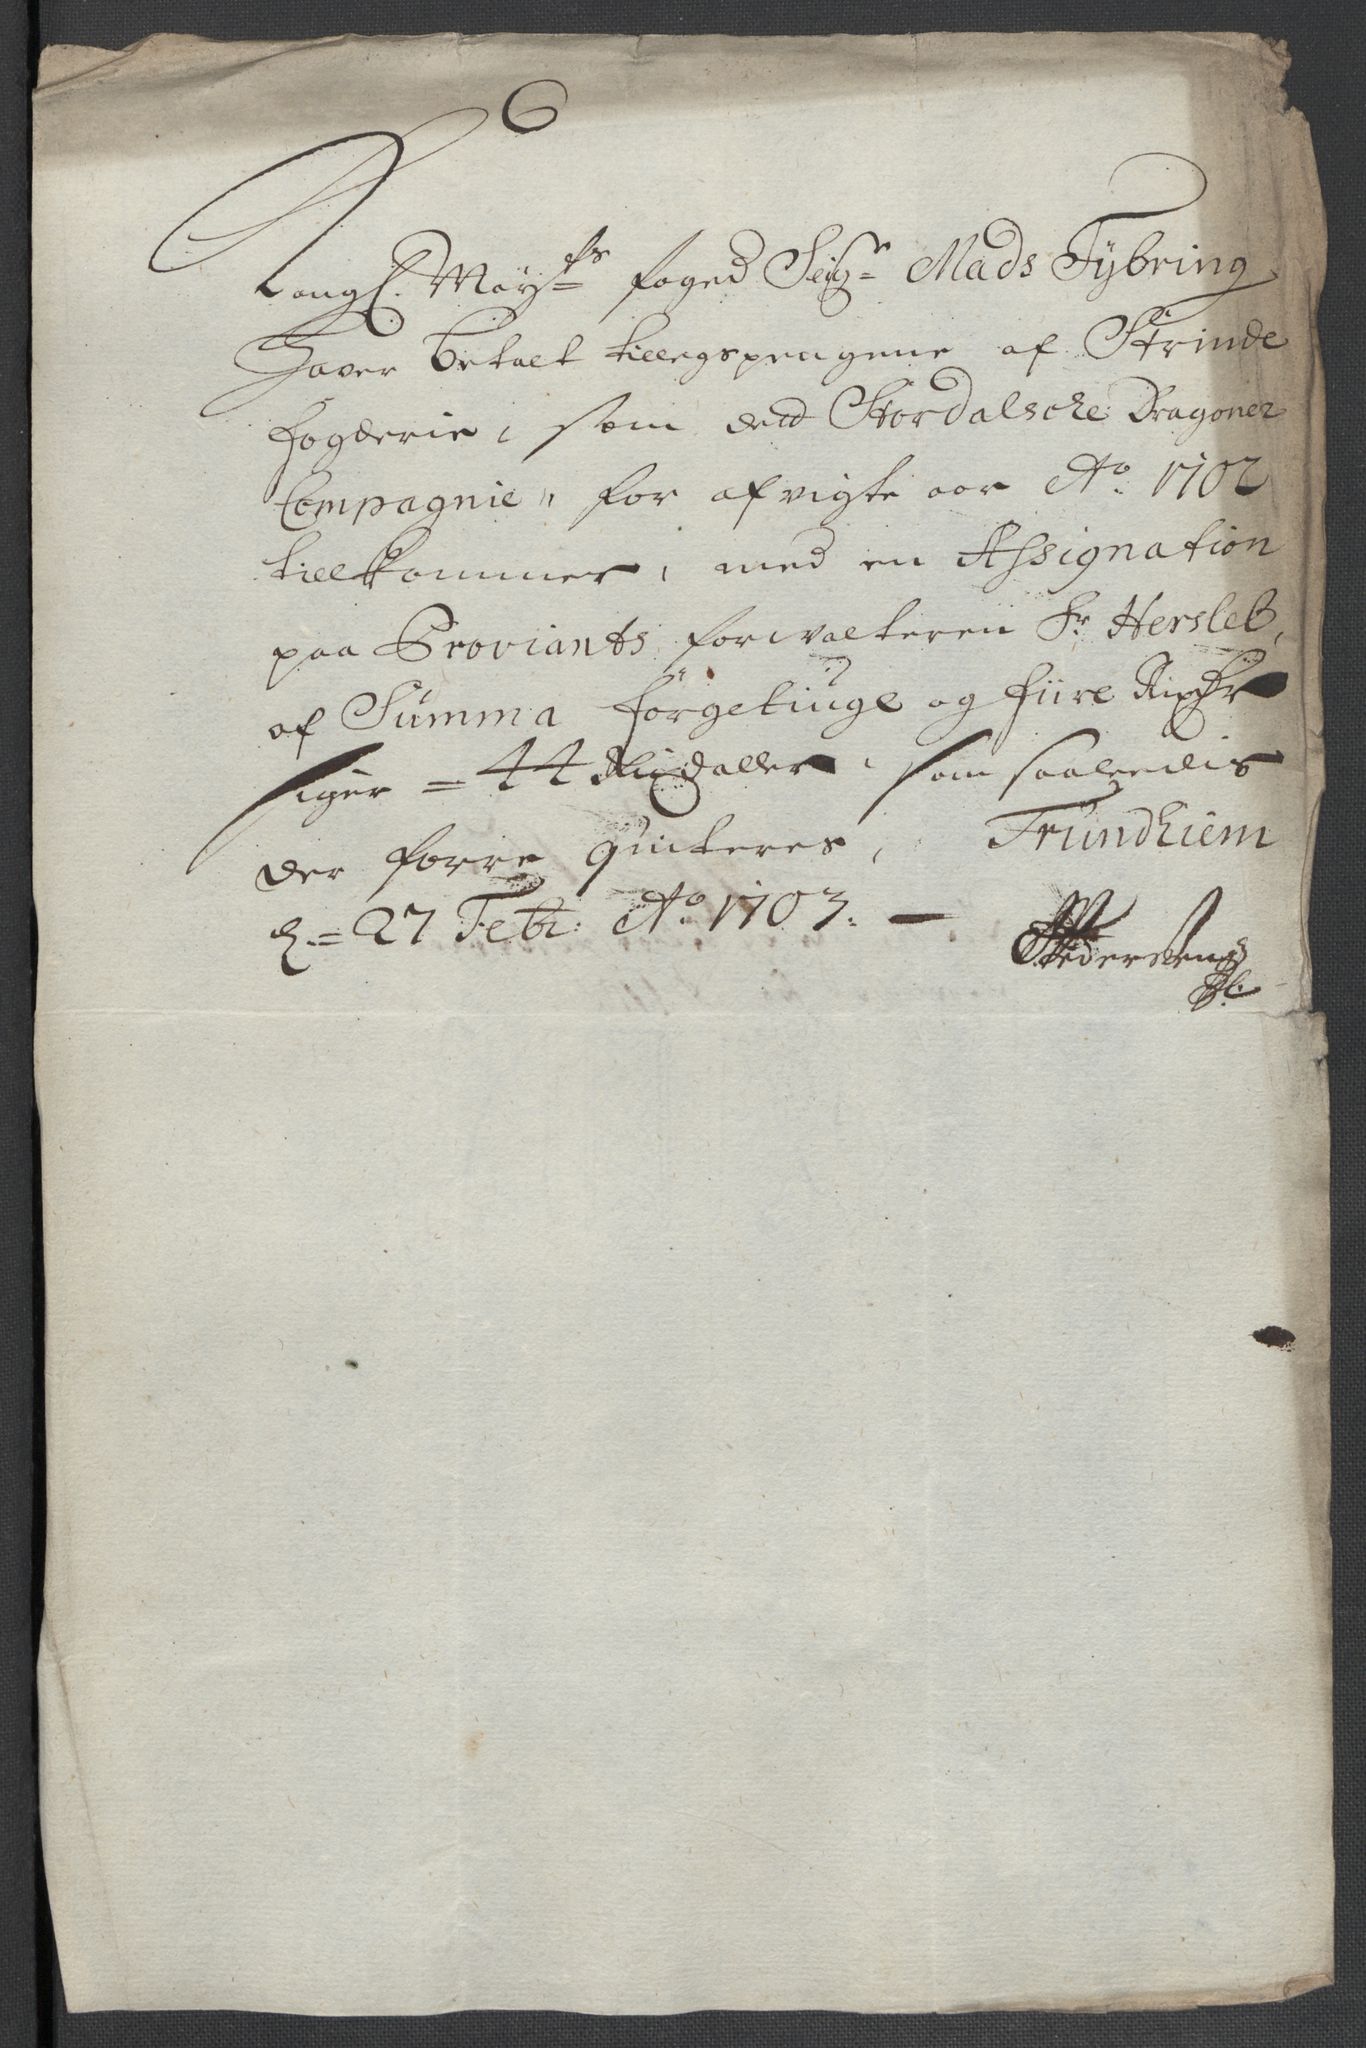 Kongl. Mayts foged Seigr Mads Tÿbring
Haver betalt tillegspengene af Strinde
fogderie, som det Stordalsche Dragoner
Compagnie, for afvigte aar Ao. 1702
tillkommer, med en Assignation
paa Proviants forwalteren Sr. Hersleb,
af Summa förgetiuge og fiire Rixdr
siger = 44 Rixdaller, som saaledis
der forre quiteres, Trundhiem
d. = 27 Febr: Ao 1703. —
Pedersen